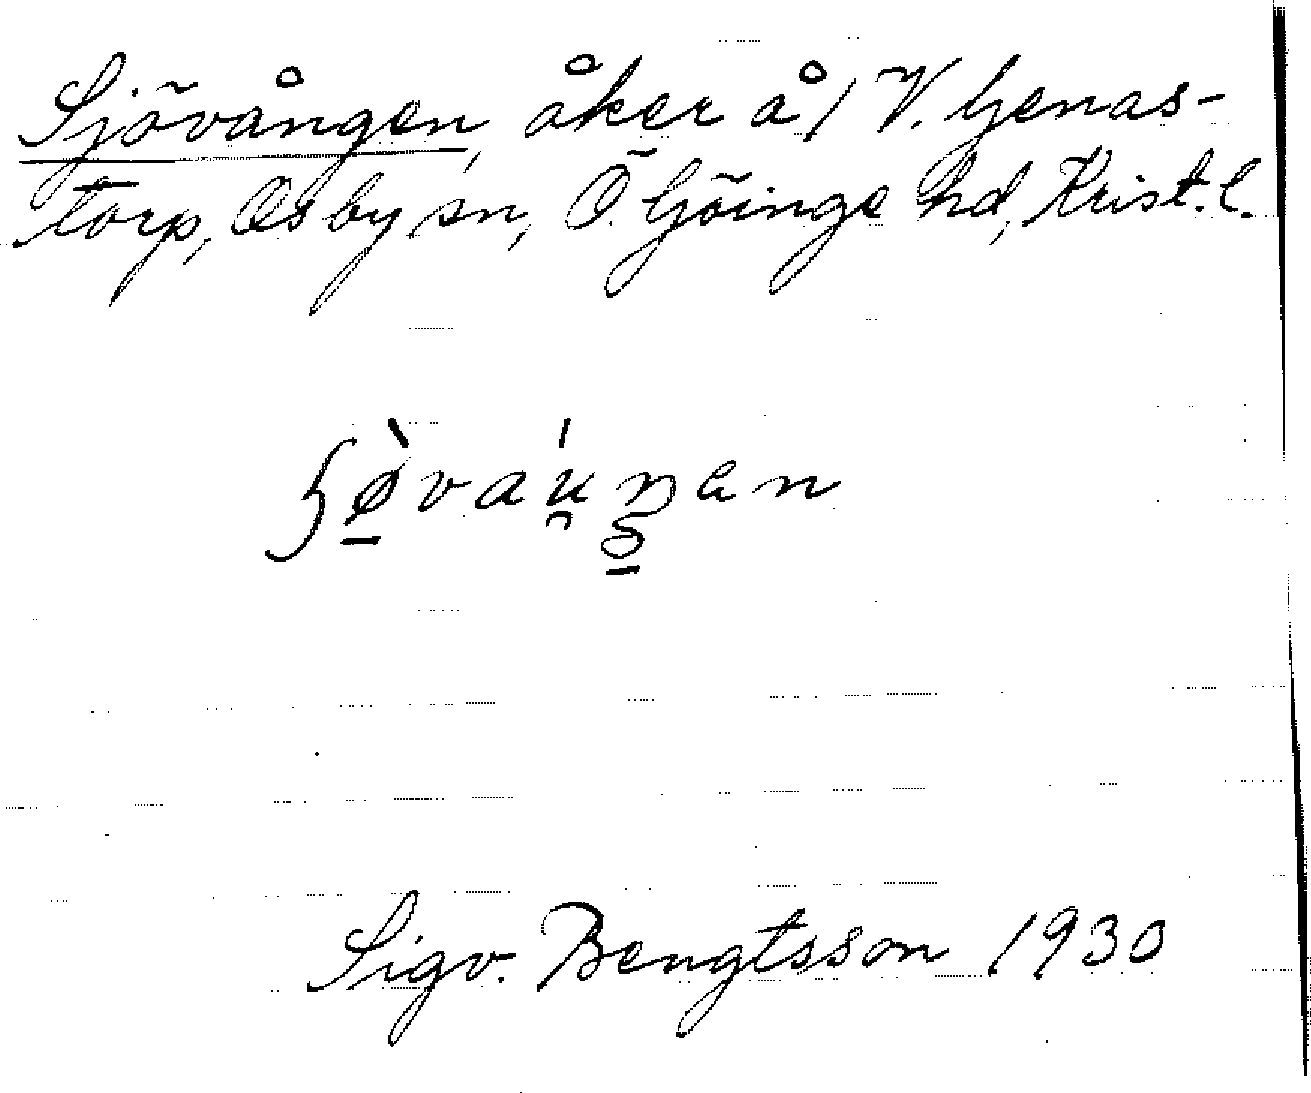 Sjövången, åker å 1 V. Genas-
torp, Osby sn, Ö. Göinge hd, Krist. l.
Sigv. Bengtsson 1930